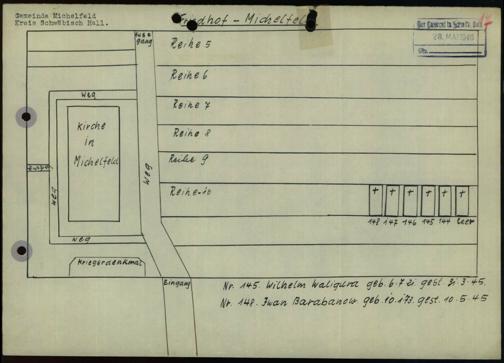 Gemeinde Michelfeld
Kreis Schwäbisch Hall.
Friedhof - Michelfeld
28. MAI 1948
Aus-
gang
Reihe 5
Reihe 6
Reihe 7
Reihe 8
Reihe 9
Reihe 10
Weg
Kirche
in
Michelfeld
Weg
Weg
Weg
Kriegerdenkmal
Eingang
148 147 146 145 144 leer
Nr. 145. Wilhelm Waligura geb. 6.7.21. gest. 21.3.45.
Nr. 148. Iwan Barabanow geb. 10.1.73. gest. 10.5.45